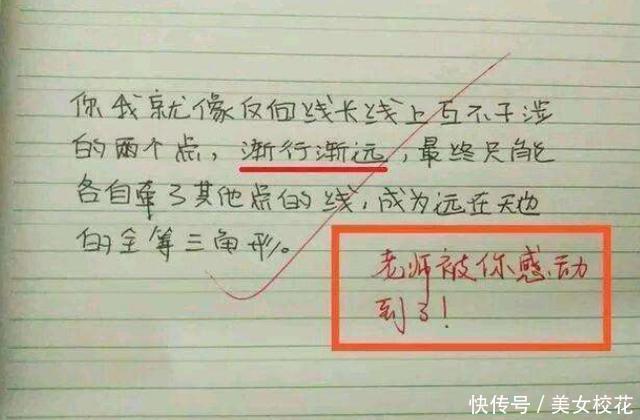 你我就像反向延长线上互不干涉
的两个点，渐行渐远，最终只能
各自牵了其他点的线，成为远在天边
的全等三角形。
老师被你感动
到了！
快传号／美女校花